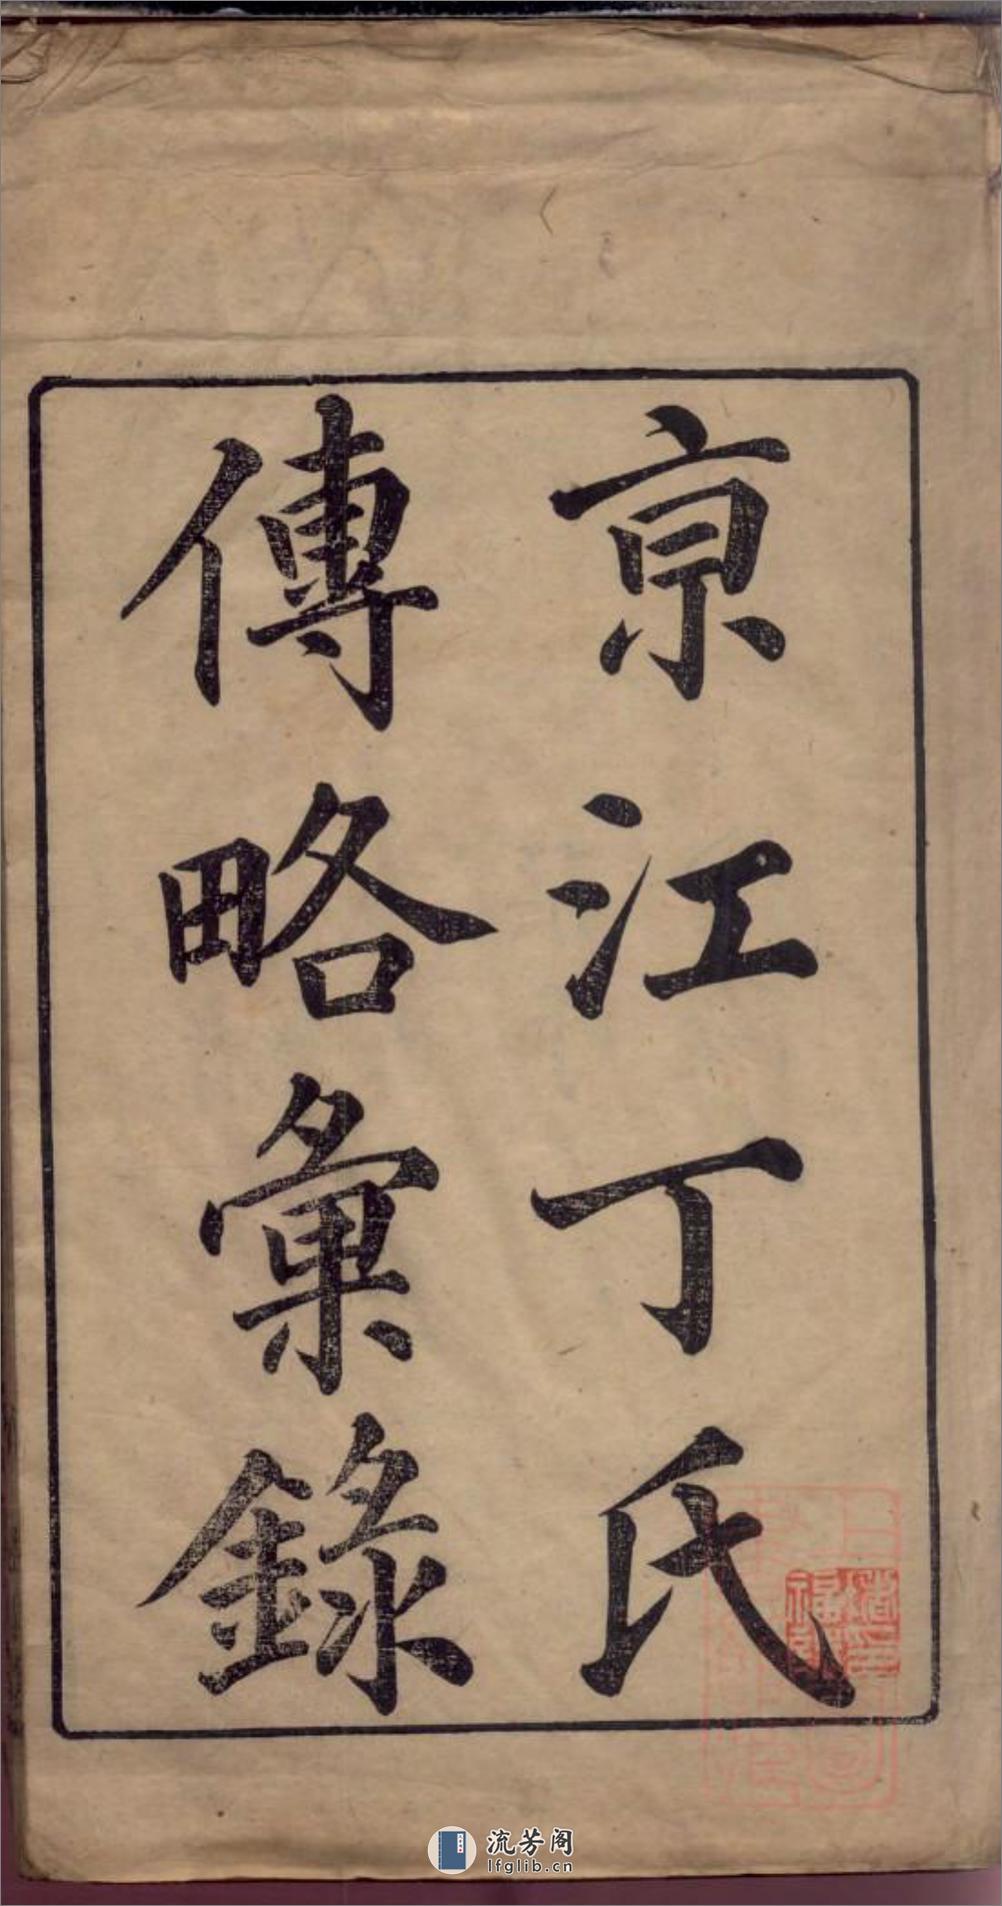 京江丁氏
傳略彙錄
流芳阁
lfglib.cn